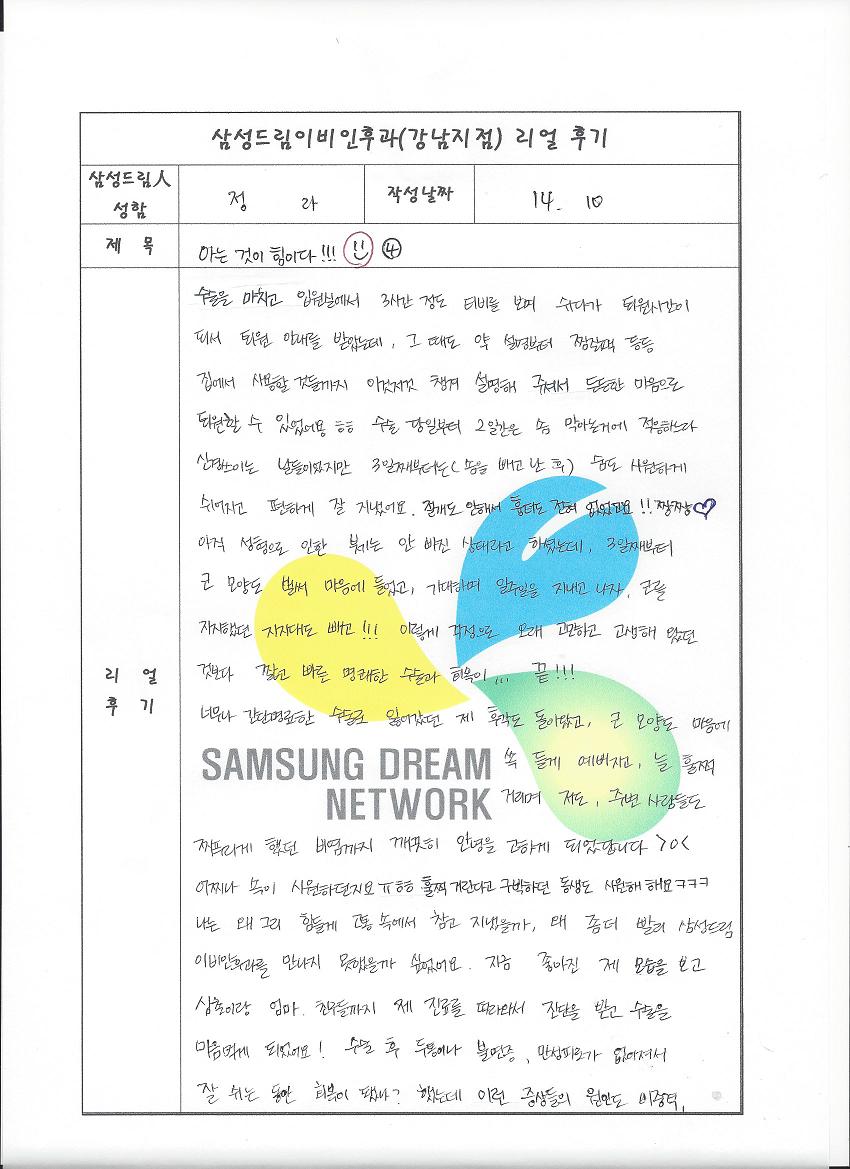 삼성드림이비인후과(강남지점) 리얼 후기
삼성드림人 성함
정 라
작성날짜
14. 10
제 목
아는 것이 힘이다!!! ④
리 얼 후 기
수술을 마치고 입원실에서 3시간 정도 티비를 보며 쉬다가 퇴원시간이
되서 퇴원 안내를 받았는데, 그 때도 약 설명부터 찜질팩 등등
집에서 사용할 것들까지 이것저것 챙겨 설명해 주셔서 든든한 마음으로
퇴원할 수 있었어용 ㅎㅎ 수술 당일부터 2일간은 솜 막아논거에 적응하느라
신경쓰이는 날들이었지만 3일째부터는(솜을 빼고 난 후) 숨도 시원하게
쉬어지고 편하게 잘 지냈어요. 절개도 안해서 흉터도 전혀 없었고요!! 짱짱♡
아직 성형으로 인한 붓기는 안 빠진 상태라고 하셨는데, 3일째부터
코 모양도 벌써 마음에 들었고, 기대하며 일주일을 지내고 나자, 코를
지지했던 지지대도 빼고!!! 이렇게 걱정으로 오래 고민하고 고생해 왔던
것보다 짧고 빠른 명쾌한 수술과 회복이... 끝!!!
너무나 간단명료한 수술로 잃어갔던 제 후각도 돌아왔고, 코 모양도 마음에
쏙 들게 예뻐지고, 늘 훌쩍
거리며 저도, 주변 사람들도
SAMSUNG DREAM
NETWORK
찌푸리게 했던 비염까지 깨끗히 안녕을 고하게 되었답니다 >o<
어찌나 속이 시원하던지요 ㅠㅎㅎ 훌쩍 거린다고 구박하던 동생도 시원해 해요ㅋㅋㅋ
나는 왜 그리 힘들게 고통 속에서 참고 지냈을까, 왜 좀더 빨리 삼성드림
이비인후과를 만나지 못했을까 싶었어요. 지금 좋아진 제 모습을 보고
삼촌이랑 엄마. 친구들까지 제 진료를 따라와서 진단을 받고 수술을
마음먹게 되었어요! 수술 후 두통이나 불면증, 만성피로가 없어져서
잘 쉬는 동안 회복이 됐나? 했는데 이런 증상들의 원인도 비중격,